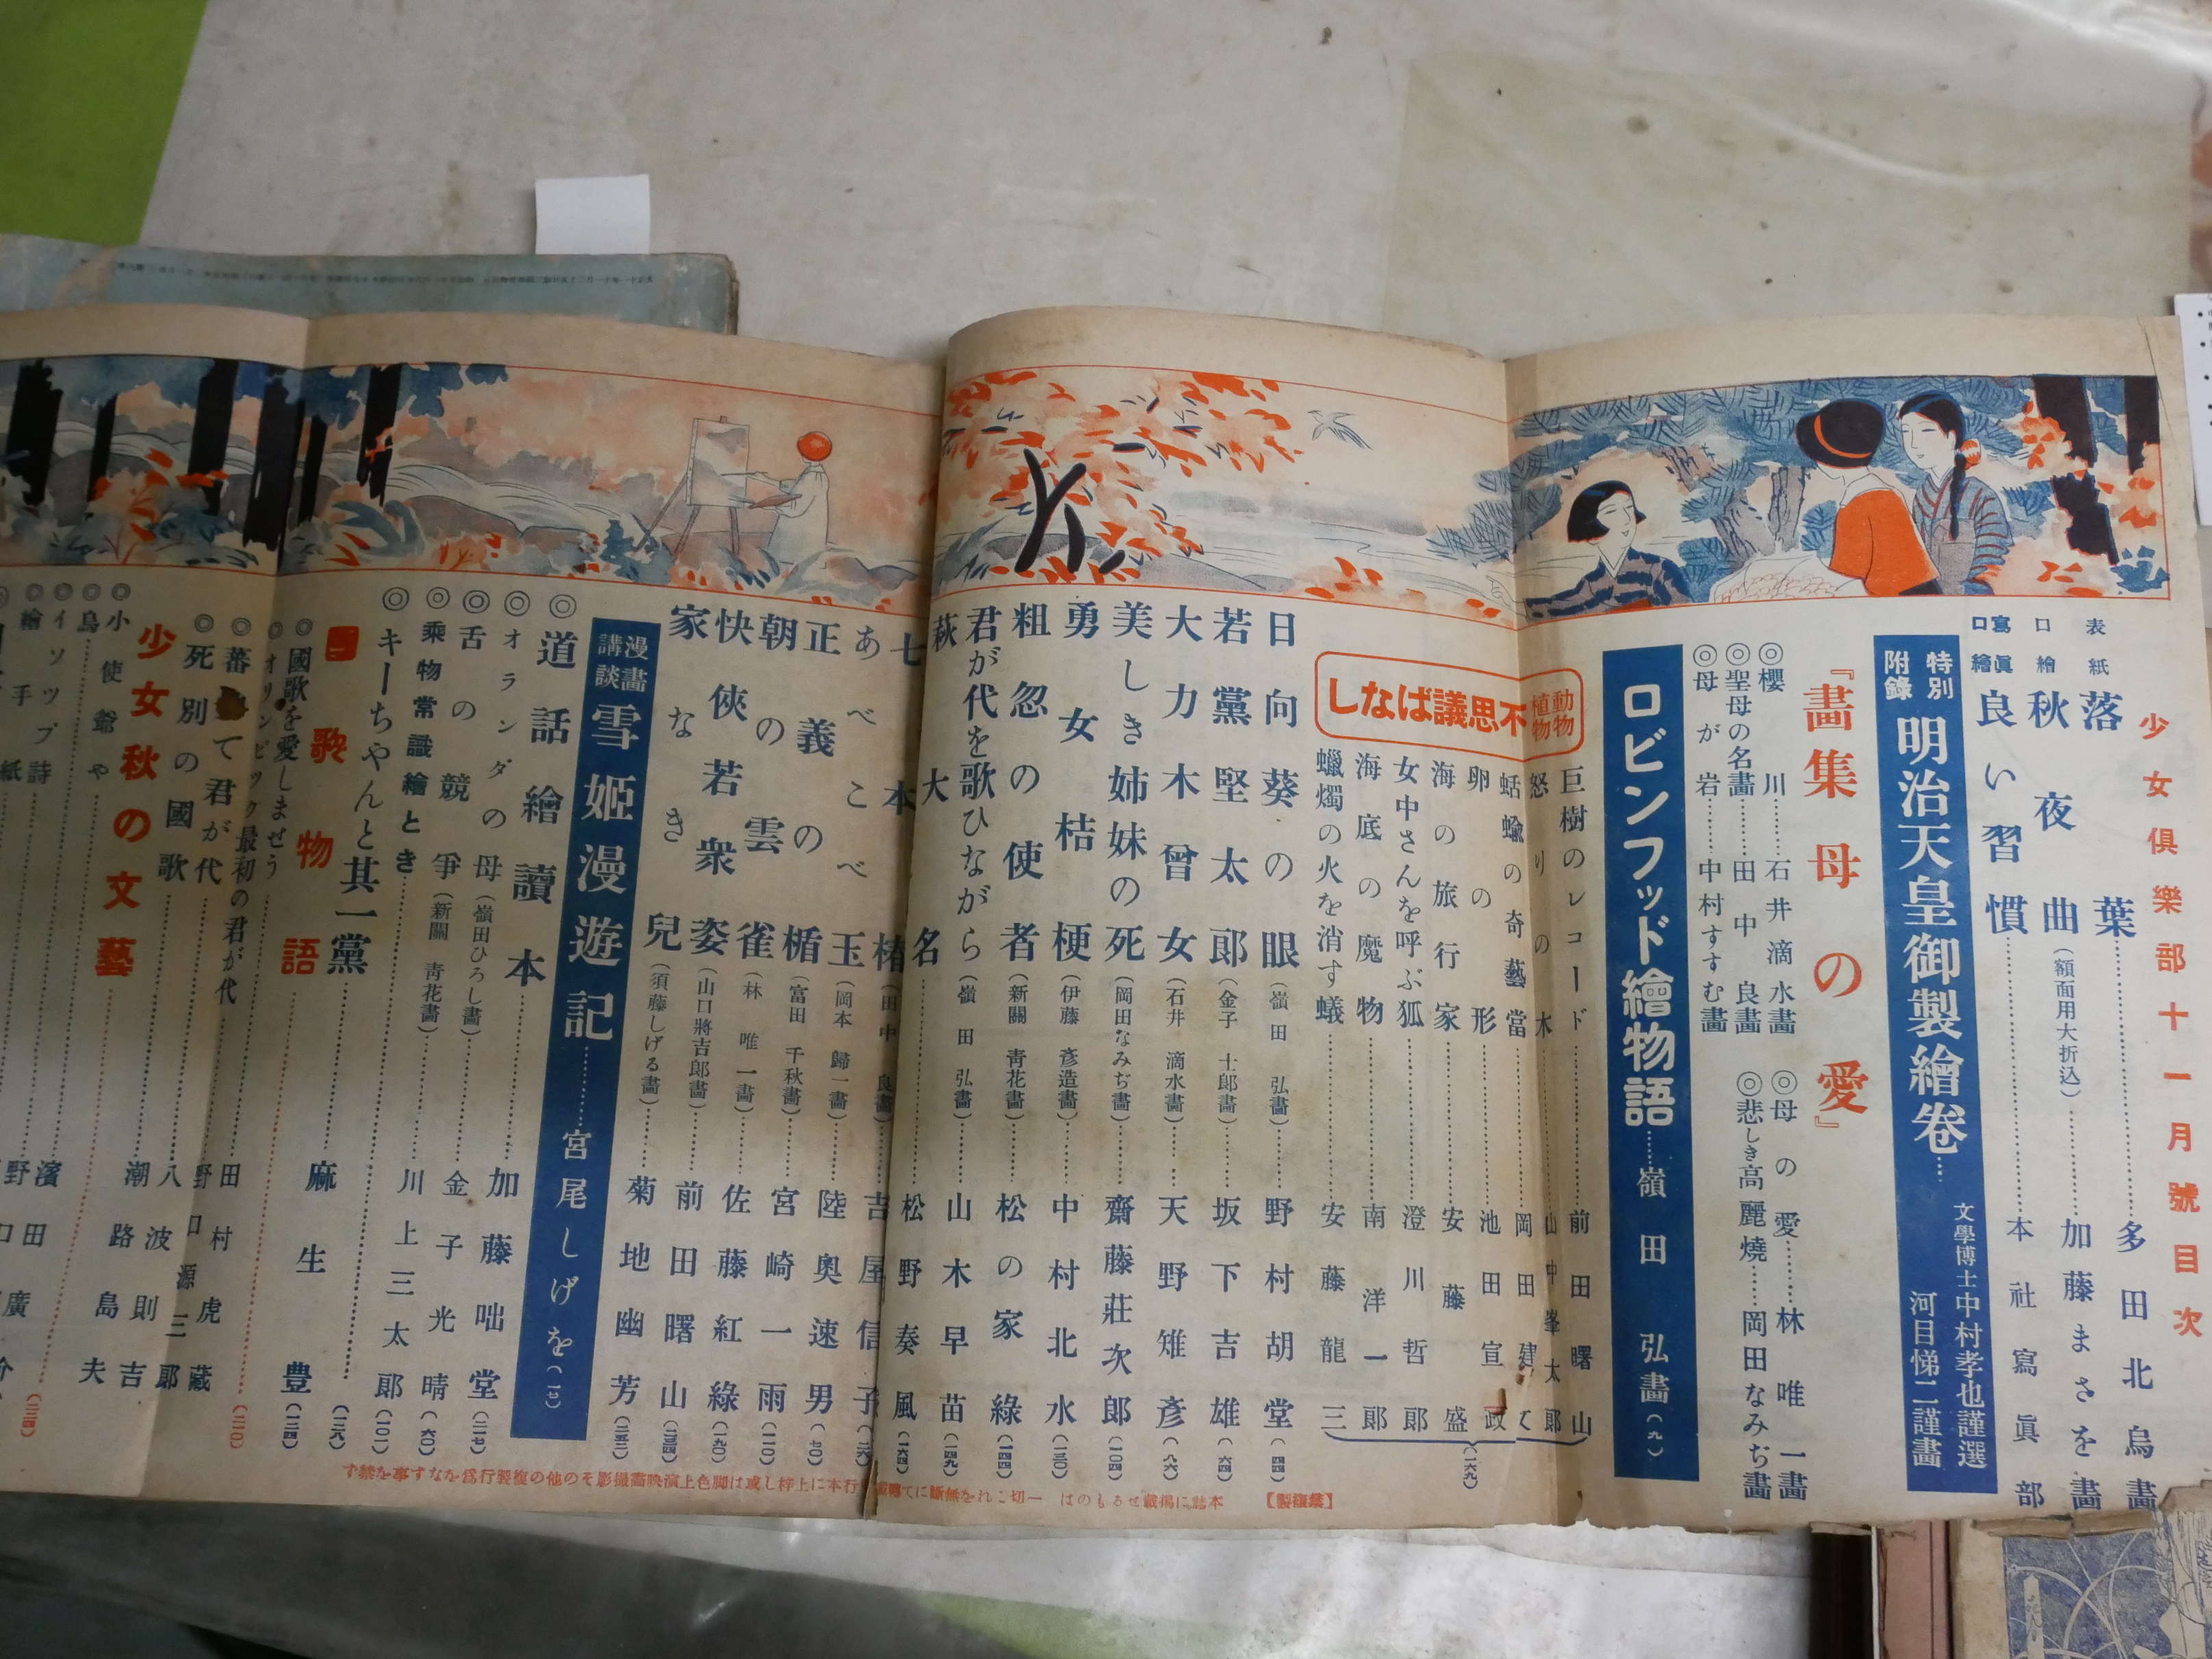 少女倶樂部十一月號目次
表紙 落葉 多田北烏畫
口繪 秋夜曲(額面用大折込) 加藤まさを畫
寫眞口繪 良い習慣 本社寫眞部
特別附錄 明治天皇御製繪卷 文學博士中村孝也謹選 河目悌二謹畫
『畫集母の愛』
◎櫻川 石井滴水畫
◎聖母の名畫 田中良畫
◎母が岩 中村すすむ畫
◎母の愛 林唯一畫
◎悲しき高麗燒 岡田なみぢ畫
ロビンフッド繪物語 嶺田弘畫(九)
動物植物 不思議ばなし
巨樹のレコード 前田曙山
怒りの木 山中峯太郞
蛞蝓の奇藝當 岡田建文
卵の形 池田宣政
海の旅行家 安藤盛
女中さんを呼ぶ狐 澄川哲郞
海底の魔物 南洋一郞
蠟燭の火を消す蟻 安藤龍三
(一六九)
日向葵の眼(嶺田弘畫) 野村胡堂(四四)
若黨堅太郞(金子士郞畫) 坂下吉雄(六四)
大力木曾女(石井滴水畫) 天野雉彥(八六)
美しき姉妹の死(岡田なみぢ畫) 齋藤莊次郞(一〇四)
勇女桔梗(伊藤彥造畫) 中村北水(一三〇)
粗忽の使者(新關靑花畫) 松の家綠(一四四)
君が代を歌ひながら(嶺田弘畫) 山木早苗(一四九)
萩大名 松野奏風(一六四)
七本椿(田中良畫) 吉屋信子(二六)
あべこべ玉(岡本歸一畫) 陸奧速男(七〇)
正義の楯(富田千秋畫) 宮崎一雨(一一〇)
朝の雲雀(林唯一畫) 佐藤紅綠(一九〇)
快俠若衆姿(山口將吉郞畫) 前田曙山(二四四)
家なき兒(須藤しげる畫) 菊地幽芳(二五二)
漫畫講談 雪姬漫遊記 宮尾しげを(一七)
◎道話繪讀本 加藤咄堂(二一七)
◎オランダの母(嶺田ひろし畫) 金子光晴(六〇)
◎舌の競爭(新關靑花畫) 川上三太郞(一〇一)
◎乘物常識繪とき (一二八)
◎キーちやんと其一黨 麻生豊(一二四)
國歌物語 (二一〇)
◎國歌を愛しませう 田村虎藏
◎オリンピック最初の君が代 野口源三郞
◎蕃て君が代 八波則吉
◎死別の國歌 潮路島夫
少女秋の文藝 (二二四)
◎小使爺や 濱田廣介
◎烏
◎イソップ詩
◎繪手紙
【禁複製】 本誌に揭載せるものは一切これを無斷にて轉載
行本に上梓し或は脚色上演映畫撮影その他の複製行爲をなす事を禁ず